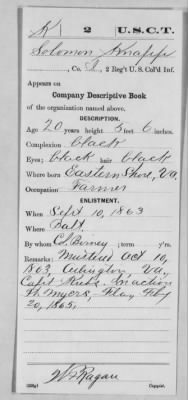 K | 2 | U.S.C.T.
Solomon Knapp
, Co. I, 2 Reg't U. S. Col'd Inf.
Appears on
Company Descriptive Book
of the organization named above.
DESCRIPTION.
Age 20 years; height 5 feet 6 inches.
Complexion black
Eyes black; hair black
Where born Eastern Shore, Va,
Occupation Farmer
ENLISTMENT.
When Sept 10, 1863
Where Balt.
By whom Birney; term y'rs.
Remarks: Mustered Oct 10,
1863, Arlington, Va,
Capt in action
Ft Myers, Fla, Feby
20, 1865,
Ragan
Copyist.